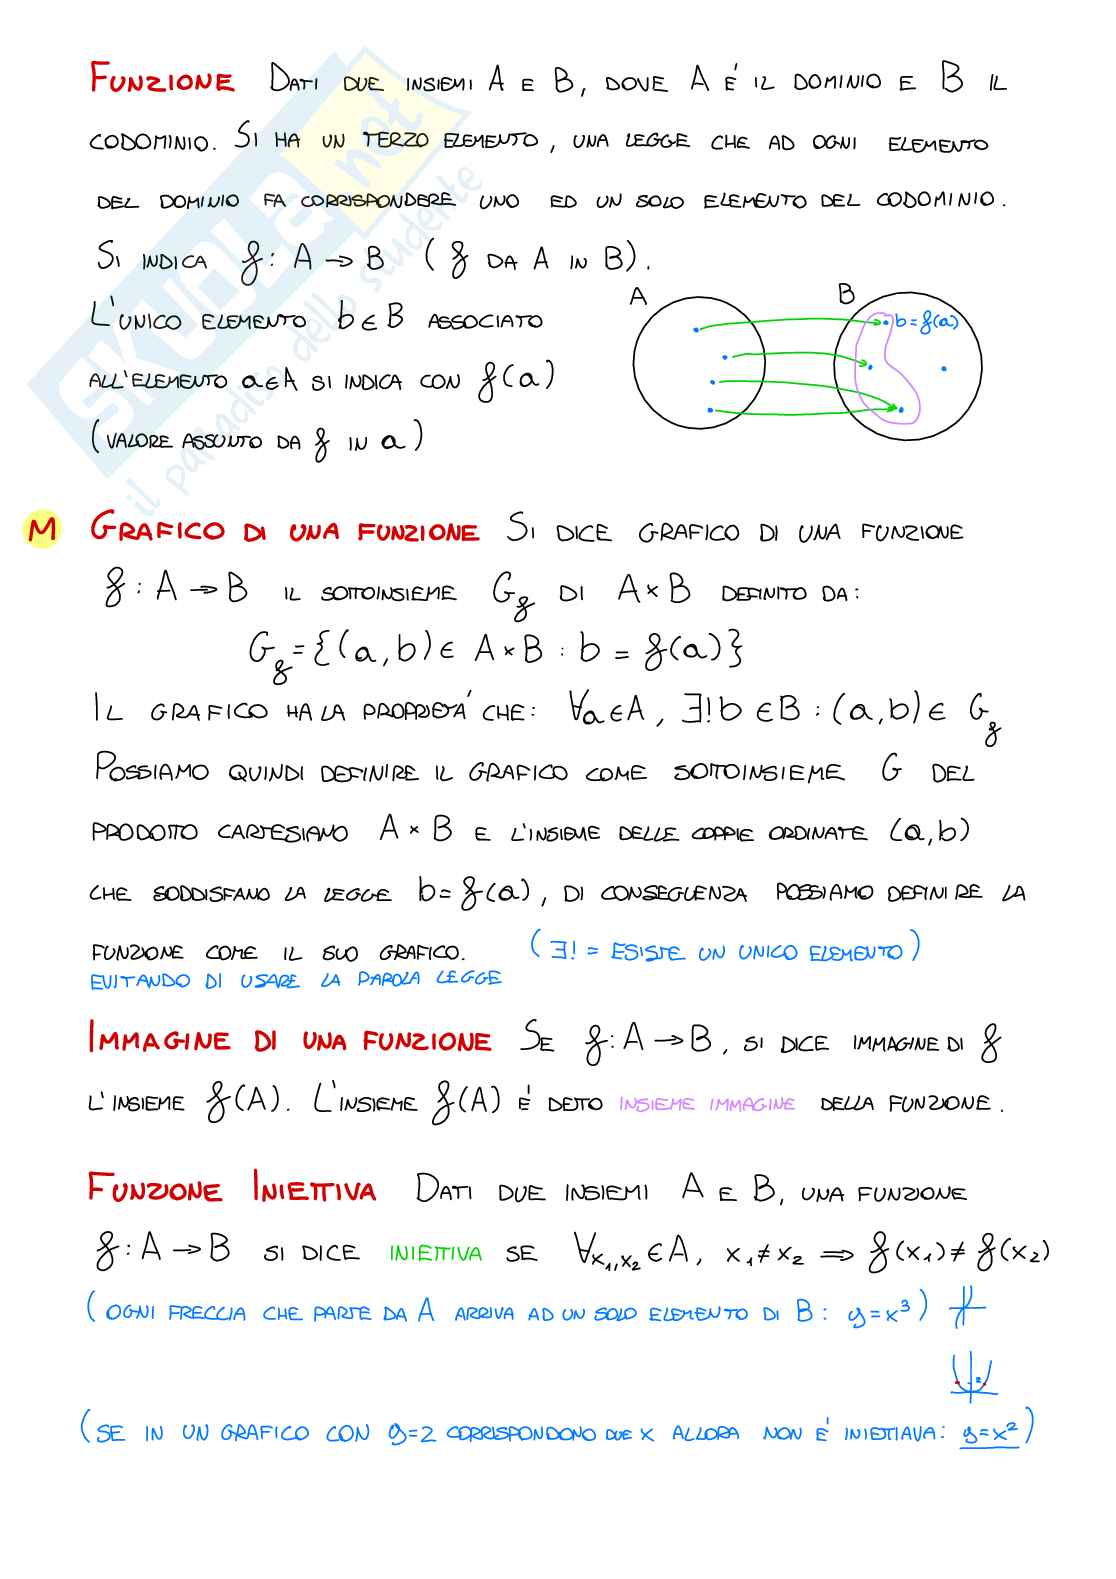 FUNZIONE DATI DUE INSIEMI A E B, DOVE A É IL DOMINIO E B IL
CODOMINIO. SI HA UN TERZO ELEMENTO, UNA LEGGE CHE AD OGNI ELEMENTO
DEL DOMINIO FA CORRISPONDERE UNO ED UN SOLO ELEMENTO DEL CODOMINIO.
SI INDICA f: A → B ( f DA A IN B).
L'UNICO ELEMENTO b ∈ B ASSOCIATO
ALL'ELEMENTO a ∈ A SI INDICA CON f(a)
(VALORE ASSUNTO DA f IN a)
A
B
b = f(a)
SKUOLA.not
il paradiso dello studente
M GRAFICO DI UNA FUNZIONE SI DICE GRAFICO DI UNA FUNZIONE
f : A → B IL SOTTOINSIEME G_f DI A × B DEFINITO DA:
G_f = {(a,b) ∈ A × B : b = f(a)}
IL GRAFICO HA LA PROPRIETÁ CHE: ∀a ∈ A, ∃!b ∈ B : (a,b) ∈ G_f
POSSIAMO QUINDI DEFINIRE IL GRAFICO COME SOTTOINSIEME G DEL
PRODOTTO CARTESIANO A × B E L'INSIEME DELLE COPPIE ORDINATE (a,b)
CHE SODDISFANO LA LEGGE b = f(a), DI CONSEGUENZA POSSIAMO DEFINIRE LA
FUNZIONE COME IL SUO GRAFICO. (∃! = ESISTE UN UNICO ELEMENTO)
EVITANDO DI USARE LA PAROLA LEGGE
IMMAGINE DI UNA FUNZIONE SE f: A → B, SI DICE IMMAGINE DI f
L'INSIEME f(A). L'INSIEME f(A) É DETTO INSIEME IMMAGINE DELLA FUNZIONE.
FUNZIONE INIETTIVA DATI DUE INSIEMI A E B, UNA FUNZIONE
f : A → B SI DICE INIETTIVA SE ∀x₁,x₂ ∈ A, x₁ ≠ x₂ ⇒ f(x₁) ≠ f(x₂)
(OGNI FRECCIA CHE PARTE DA A ARRIVA AD UN SOLO ELEMENTO DI B: y = x³)
2
(SE IN UN GRAFICO CON y=2 CORRISPONDONO DUE X ALLORA NON É INIETTIAVA: y = x²)